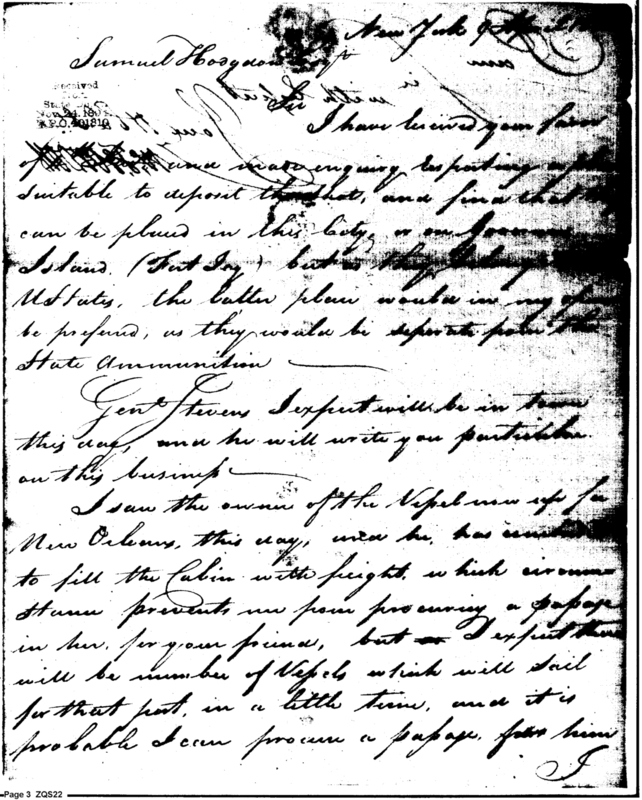 New York 9 April
Samuel Hodgdon Esqr
Received
Nov. 24. 190
R.P.O. 401810
Sir
I have received your favor
of and made enquiry respecting a place
suitable to deposit the shot, and find that
can be placed in this City, or on Governors
Island. (Fort Jay) but as they belong
UStates, the latter place would in my
be prefered, as they would be seperate from the
State Ammunition
Genl. Stevens I expect will be in town
this day, and he will write you particular
on this business
I saw the owner of the Vessel now up for
New Orleans, this day, and he, has
to fill the Cabin with freight, which circum
stance prevents me from procuring a passage
in her, for your friend, but I expect there
will be number of Vessels which will sail
for that port, in a little time, and it is
probable I can procure a passage, for him
I
Page 3 ZQS22